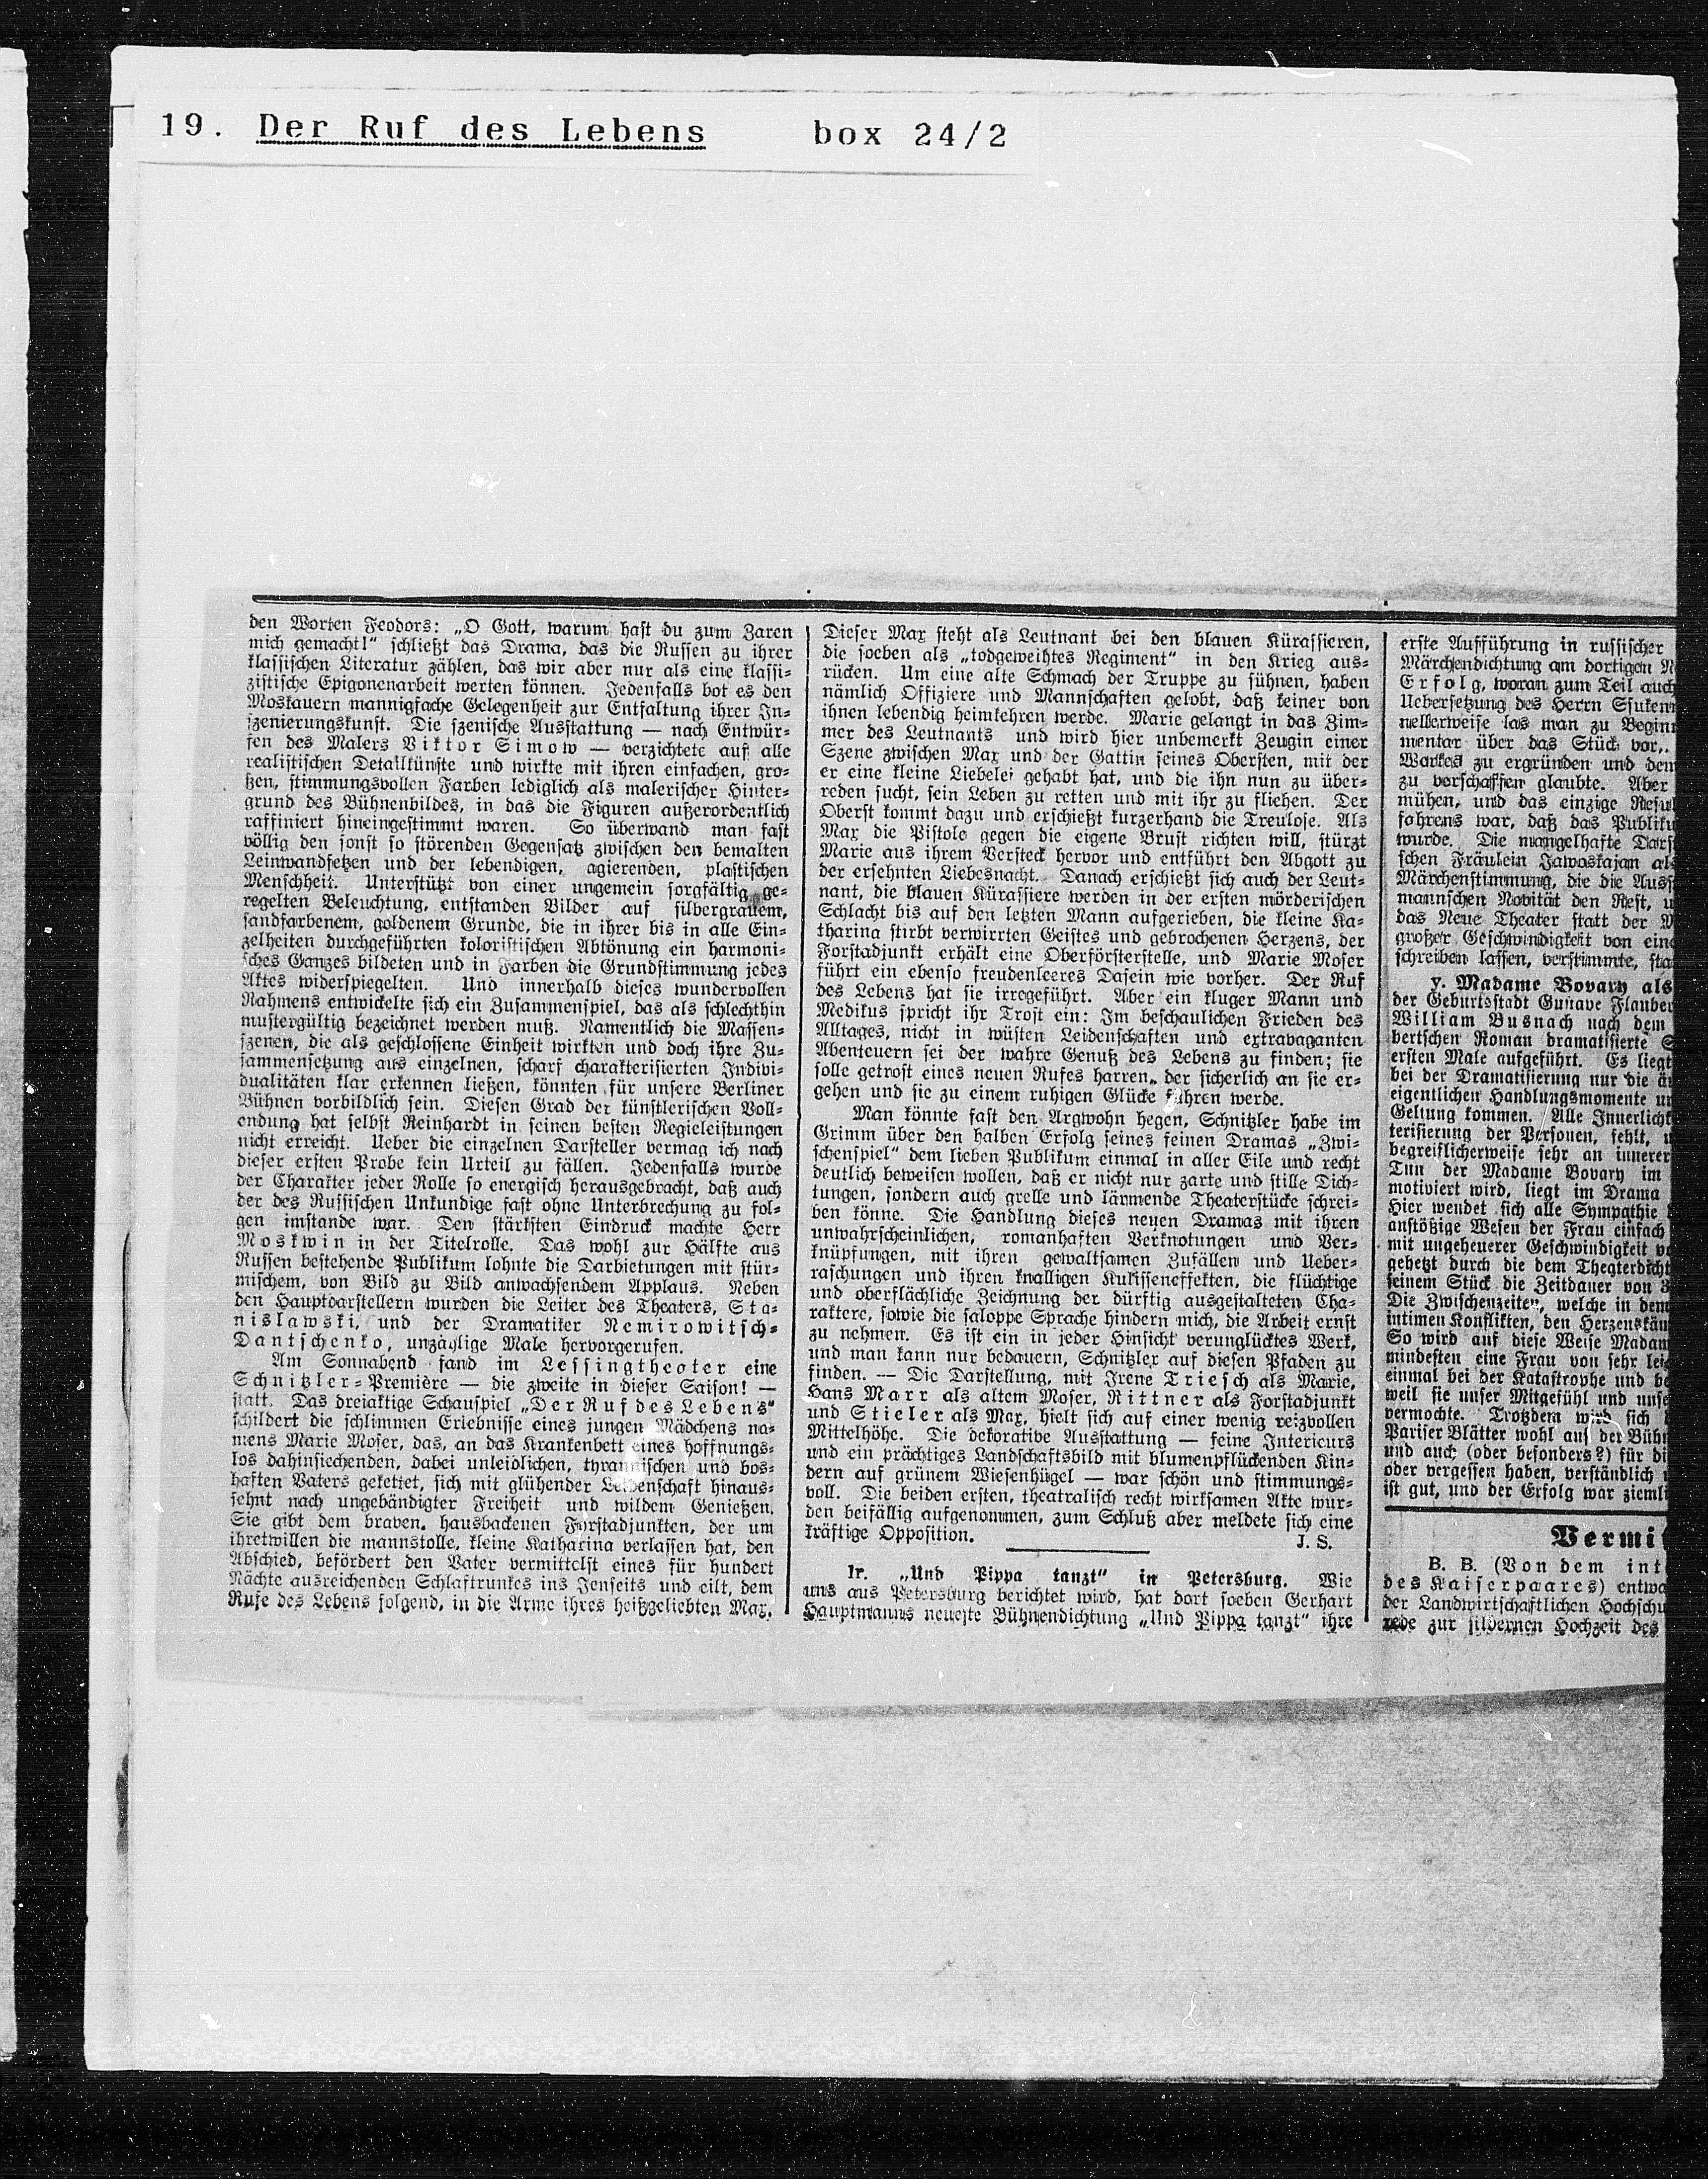 19. Der Ruf des Lebens box 24/2
den Worten Feodors: „O Gott, warum hast du zum Zaren
mich gemacht!“ schließt das Drama, das die Russen zu ihrer
klassischen Literatur zählen, das wir aber nur als eine klassi-
zistische Epigonenarbeit werten können. Jedenfalls bot es den
Moskauern mannigfache Gelegenheit zur Entfaltung ihrer In-
szenierungskunst. Die szenische Ausstattung — nach Entwür-
fen des Malers Viktor Simow — verzichtete auf alle
realistischen Detailkünste und wirkte mit ihren einfachen, gro-
ßen, stimmungsvollen Farben lediglich als malerischer Hinter-
grund des Bühnenbildes, in das die Figuren außerordentlich
raffiniert hineingestimmt waren. So überwand man fast
völlig den sonst so störenden Gegensatz zwischen den bemalten
Leinwandfetzen und der lebendigen, agierenden, plastischen
Menschheit. Unterstützt von einer ungemein sorgfältig ge-
regelten Beleuchtung, entstanden Bilder auf silbergrauem,
sandfarbenem, goldenem Grunde, die in ihrer bis in alle Ein-
zelheiten durchgeführten koloristischen Abtönung ein harmoni-
sches Ganzes bildeten und in Farben die Grundstimmung jedes
Aktes widerspiegelten. Und innerhalb dieses wundervollen
Rahmens entwickelte sich ein Zusammenspiel, das als schlechthin
mustergültig bezeichnet werden muß. Namentlich die Massen-
szenen, die als geschlossene Einheit wirkten und doch ihre Zu-
sammensetzung aus einzelnen, scharf charakterisierten Indivi-
dualitäten klar erkennen ließen, könnten für unsere Berliner
Bühnen vorbildlich sein. Diesen Grad der künstlerischen Voll-
endung hat selbst Reinhardt in seinen besten Regieleistungen
nicht erreicht. Ueber die einzelnen Darsteller vermag ich nach
dieser ersten Probe kein Urteil zu fällen. Jedenfalls wurde
der Charakter jeder Rolle so energisch herausgebracht, daß auch
der des Russischen Unkundige fast ohne Unterbrechung zu fol-
gen imstande war. Den stärksten Eindruck machte Herr
Moskwin in der Titelrolle. Das wohl zur Hälfte aus
Russen bestehende Publikum lohnte die Darbietungen mit stür-
mischem, von Bild zu Bild anwachsendem Applaus. Neben
den Hauptdarstellern wurden die Leiter des Theaters, Sta-
nislawski, und der Dramatiker Nemirowitsch-
Dantschenko, unzählige Male hervorgerufen.
Am Sonnabend fand im Lessingtheater eine
Schnitzler-Première — die zweite in dieser Saison! —
statt. Das dreiaktige Schauspiel „Der Ruf des Lebens“
schildert die schlimmen Erlebnisse eines jungen Mädchens na-
mens Marie Moser, das, an das Krankenbett eines hoffnungs-
los dahinsiechenden, dabei unleidlichen, tyrannischen und bos-
haften Vaters gekettet, sich mit glühender Leidenschaft hinaus-
sehnt nach ungebändigter Freiheit und wildem Genießen.
Sie gibt dem braven, hausbackenen Forstadjunkten, der um
ihretwillen die mannstolle, kleine Katharina verlassen hat, den
Abschied, befördert den Vater vermittelst eines für hundert
Nächte ausreichenden Schlaftrunkes ins Jenseits und eilt, dem
Rufe des Lebens folgend, in die Arme ihres heißgeliebten Max.
Dieser Max steht als Leutnant bei den blauen Kürassieren,
die soeben als „todgeweihtes Regiment“ in den Krieg aus-
rücken. Um eine alte Schmach der Truppe zu sühnen, haben
nämlich Offiziere und Mannschaften gelobt, daß keiner von
ihnen lebendig heimkehren werde. Marie gelangt in das Zim-
mer des Leutnants und wird hier unbemerkt Zeugin einer
Szene zwischen Max und der Gattin seines Obersten, mit der
er eine kleine Liebelei gehabt hat, und die ihn nun zu über-
reden sucht, sein Leben zu retten und mit ihr zu fliehen. Der
Oberst kommt dazu und erschießt kurzerhand die Treulose. Als
Max die Pistole gegen die eigene Brust richten will, stürzt
Marie aus ihrem Versteck hervor und entführt den Abgott zu
der ersehnten Liebesnacht. Danach erschießt sich auch der Leut-
nant, die blauen Kürassiere werden in der ersten mörderischen
Schlacht bis auf den letzten Mann aufgerieben, die kleine Ka-
tharina stirbt verwirrten Geistes und gebrochenen Herzens, der
Forstadjunkt erhält eine Oberförsterstelle, und Marie Moser
führt ein ebenso freudenleeres Dasein wie vorher. Der Ruf
des Lebens hat sie irregeführt. Aber ein kluger Mann und
Medikus spricht ihr Trost ein: Im beschaulichen Frieden des
Alltages, nicht in wüsten Leidenschaften und extravaganten
Abenteuern sei der wahre Genuß des Lebens zu finden; sie
solle getrost eines neuen Rufes harren, der sicherlich an sie er-
gehen und sie zu einem ruhigen Glücke führen werde.
Man könnte fast den Argwohn hegen, Schnitzler habe im
Grimm über den halben Erfolg seines feinen Dramas „Zwi-
schenspiel“ dem lieben Publikum einmal in aller Eile und recht
deutlich beweisen wollen, daß er nicht nur zarte und stille Dich-
tungen, sondern auch grelle und lärmende Theaterstücke schrei-
ben könne. Die Handlung dieses neuen Dramas mit ihren
unwahrscheinlichen, romanhaften Verknotungen und Ver-
knüpfungen, mit ihren gewaltsamen Zufällen und Ueber-
raschungen und ihren knalligen Kulisseneffekten, die flüchtige
und oberflächliche Zeichnung der dürftig ausgestalteten Cha-
raktere, sowie die saloppe Sprache hindern mich, die Arbeit ernst
zu nehmen. Es ist ein in jeder Hinsicht verunglücktes Werk,
und man kann nur bedauern, Schnitzler auf diesen Pfaden zu
finden. — Die Darstellung, mit Irene Triesch als Marie,
Hans Marr als altem Moser, Rittner als Forstadjunkt
und Stieler als Max, hielt sich auf einer wenig reizvollen
Mittelhöhe. Die dekorative Ausstattung — feine Interieurs
und ein prächtiges Landschaftsbild mit blumenpflückenden Kin-
dern auf grünem Wiesenhügel — war schön und stimmungs-
voll. Die beiden ersten, theatralisch recht wirksamen Akte wur-
den beifällig aufgenommen, zum Schluß aber meldete sich eine
kräftige Opposition. J. S.
lr. „Und Pippa tanzt“ in Petersburg. Wie
uns aus Petersburg berichtet wird, hat dort soeben Gerhart
Hauptmanns neueste Bühnendichtung „Und Pippa tanzt“ ihre
erste Aufführung in russischer
Märchendichtung am dortigen
Erfolg, woran zum Teil auch
Uebersetzung des Herrn
nellerweise las man zu
mentar über das Stück vor,
Werkes zu ergründen und
zu verschaffen glaubte. Aber
mühen, und das einzige
fahrens war, daß das
wurde. Die mangelhafte
schen Fräulein Jawaskajan
Märchenstimmung, die die
mannschen Novität den Rest,
das Neue Theater statt der
großer Geschwindigkeit von
schreiben lassen, verstimmte,
y. Madame Bovary als
der Geburtsstadt Gustave
William Busnach nach dem
bertschen Roman dramatisierte
ersten Male aufgeführt. Es liegt
bei der Dramatisierung nur die
eigentlichen Handlungsmomente
Geltung kommen. Alle
terisierung der Personen, fehlt,
begreiflicherweise sehr an innerer
Tun der Madame Bovary im
motiviert wird, liegt im Drama
Hier wendet sich alle Sympathie
anstößige Wesen der Frau einfach
mit ungeheuerer Geschwindigkeit
gehetzt durch die dem
seinem Stück die Zeitdauer von
Die Zwischenzeiten, welche in dem
intimen Konflikten, den
So wird auf diese Weise
mindesten eine Frau von sehr
einmal bei der Katastrophe und
weil sie unser Mitgefühl und
vermochte. Trotzdem wird sich
Pariser Blätter wohl auf der
und auch (oder besonders?) für
oder vergessen haben, verständlich
ist gut, und der Erfolg war
Vermi
B. B. (Von dem
des Kaiserpaares)
der Landwirtschaftlichen
rede zur silbernen Hochzeit des